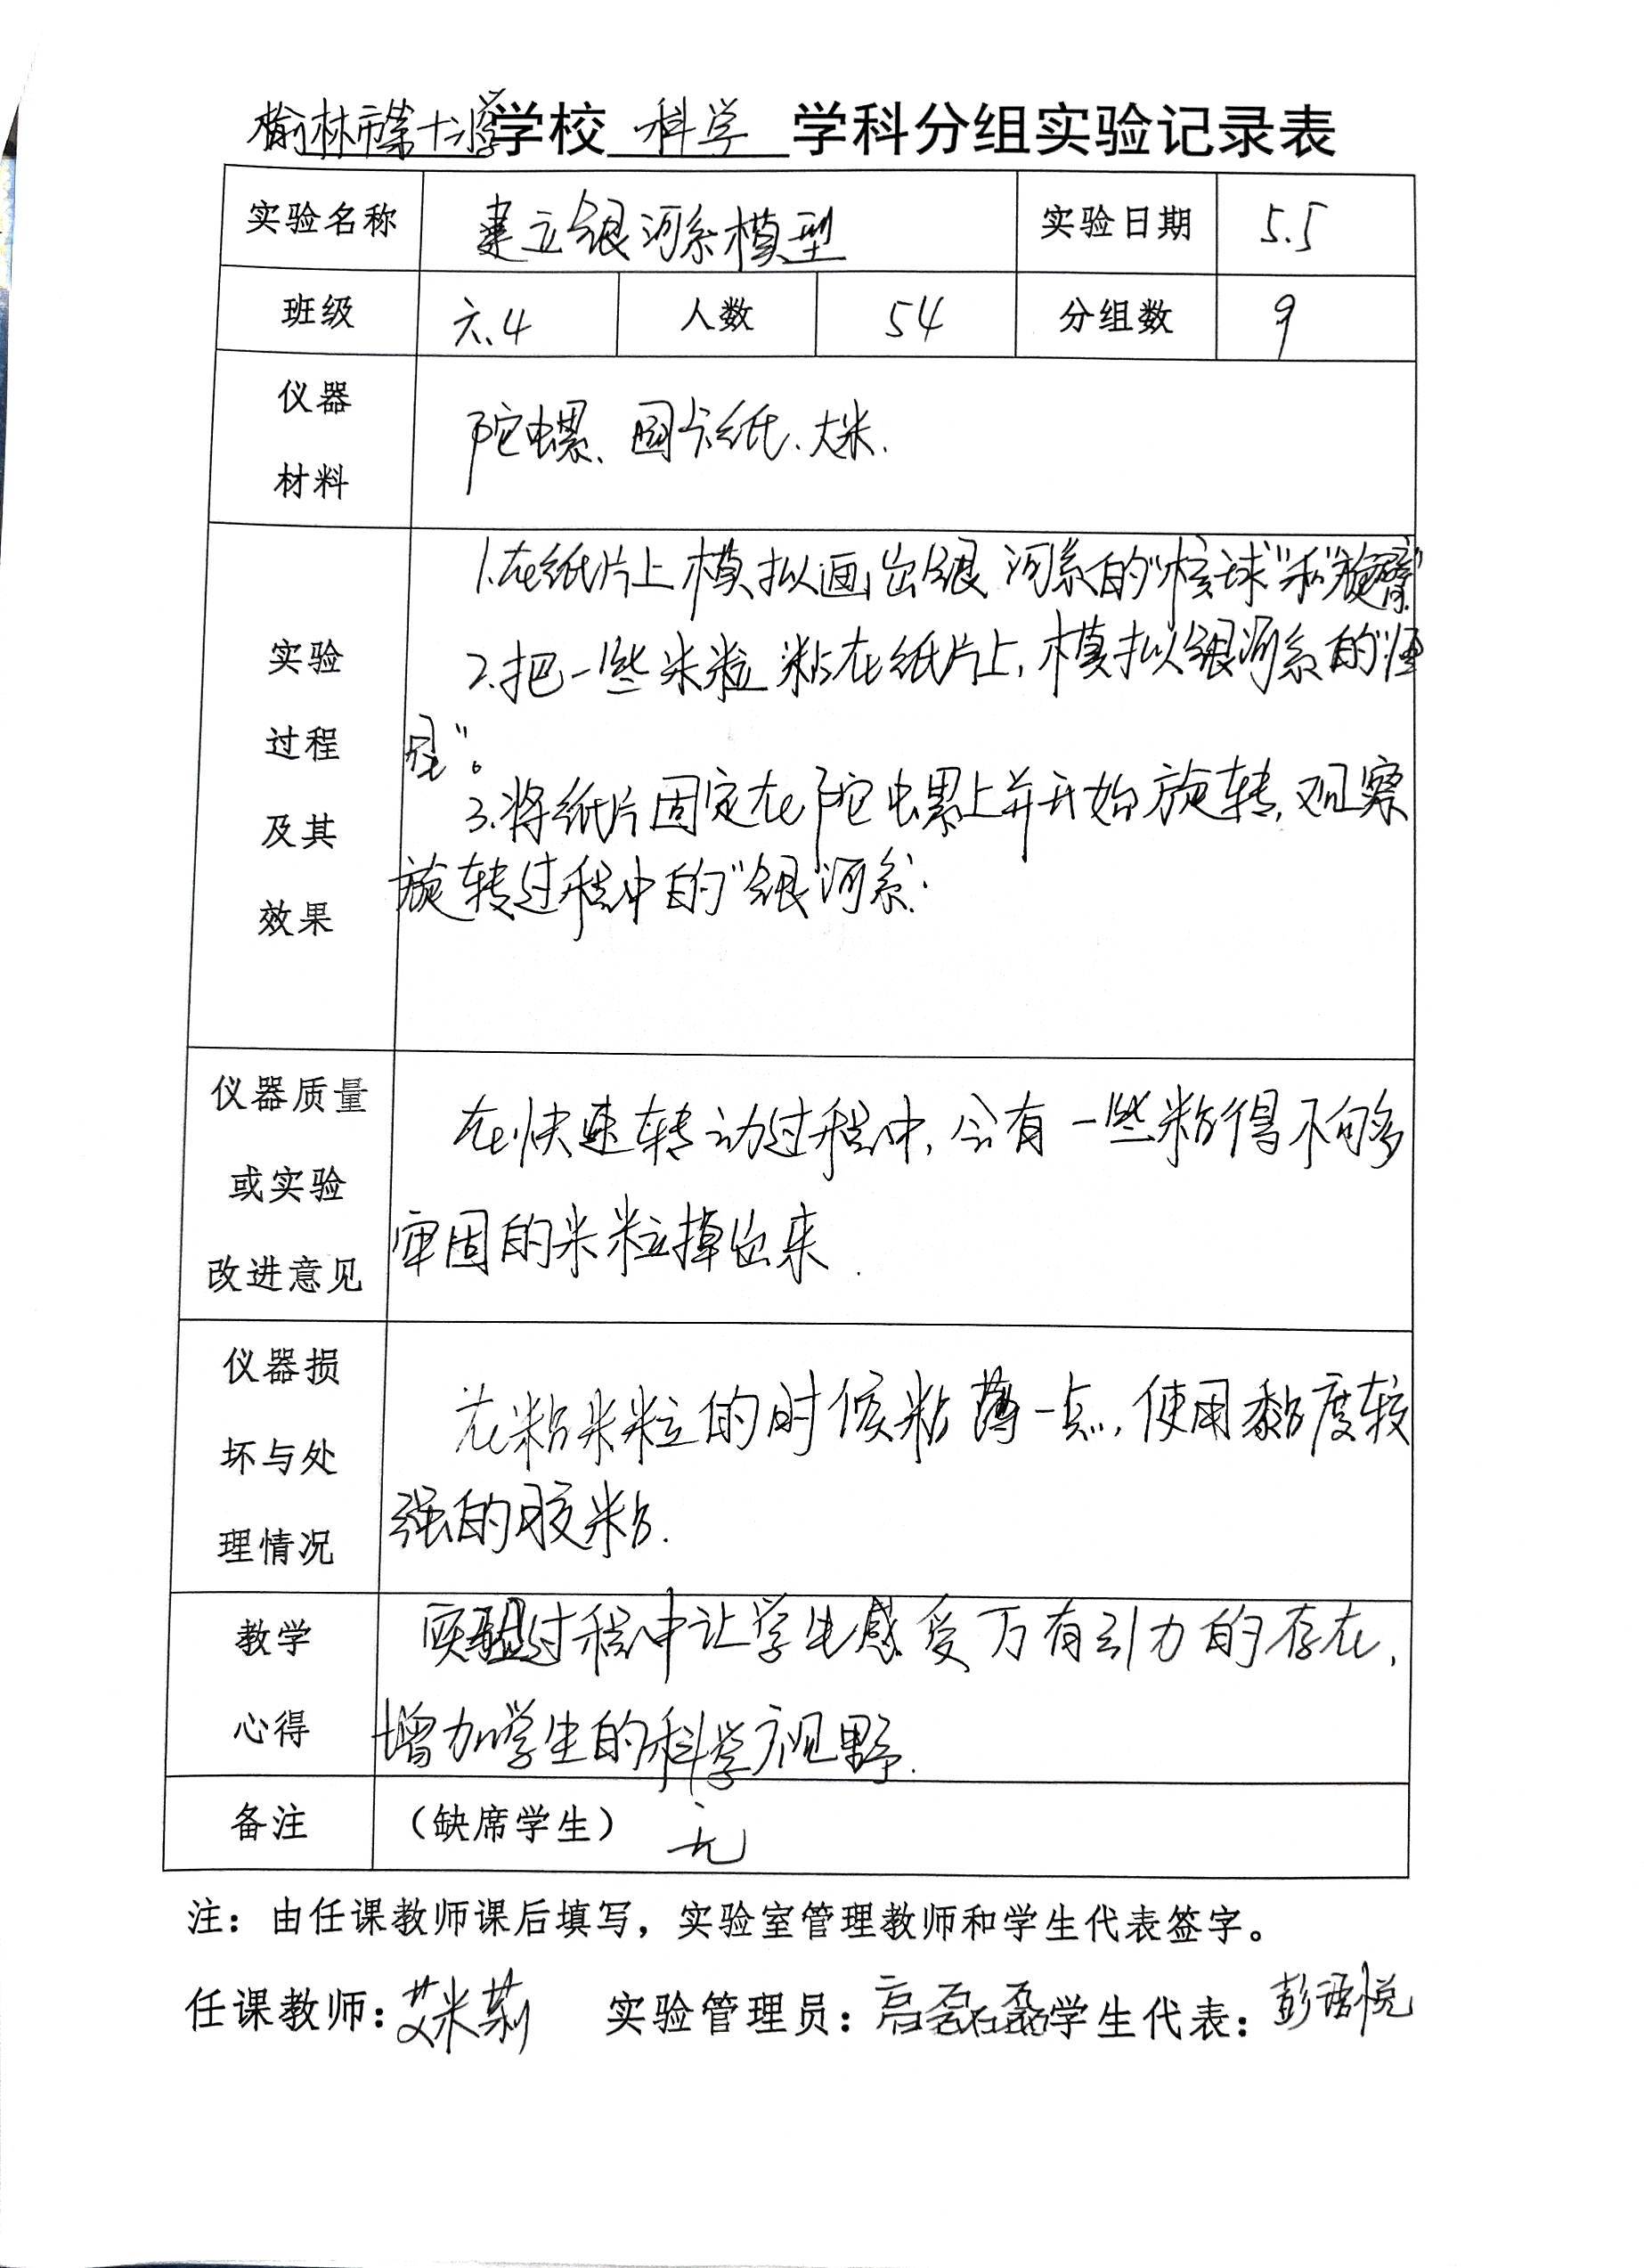 榆林市第十小学学校 科学 学科分组实验记录表
实验名称 建立银河系模型 实验日期 5.5
班级 六.4 人数 54 分组数 9
仪器
材料
陀螺、圆卡纸、大米.
实验
过程
及其
效果
1.在纸片上模拟画出银河系的“核球”和“旋臂”
2.把一些米粒粘在纸片上,模拟银河系的“恒
星”。
3.将纸片固定在陀螺上并开始旋转,观察
旋转过程中的“银河系.
仪器质量
或实验
改进意见
在快速转动过程中,会有一些粘得不够
牢固的米粒掉出来.
仪器损
坏与处
理情况
在粘米粒的时候粘薄一点,使用黏度较
强的胶粘.
教学
心得
实验过程中让学生感受万有引力的存在,
增加学生的科学视野.
备注 (缺席学生) 无
注：由任课教师课后填写，实验室管理教师和学生代表签字。
任课教师: 艾米莉 实验管理员: 高磊磊 学生代表: 彭语悦